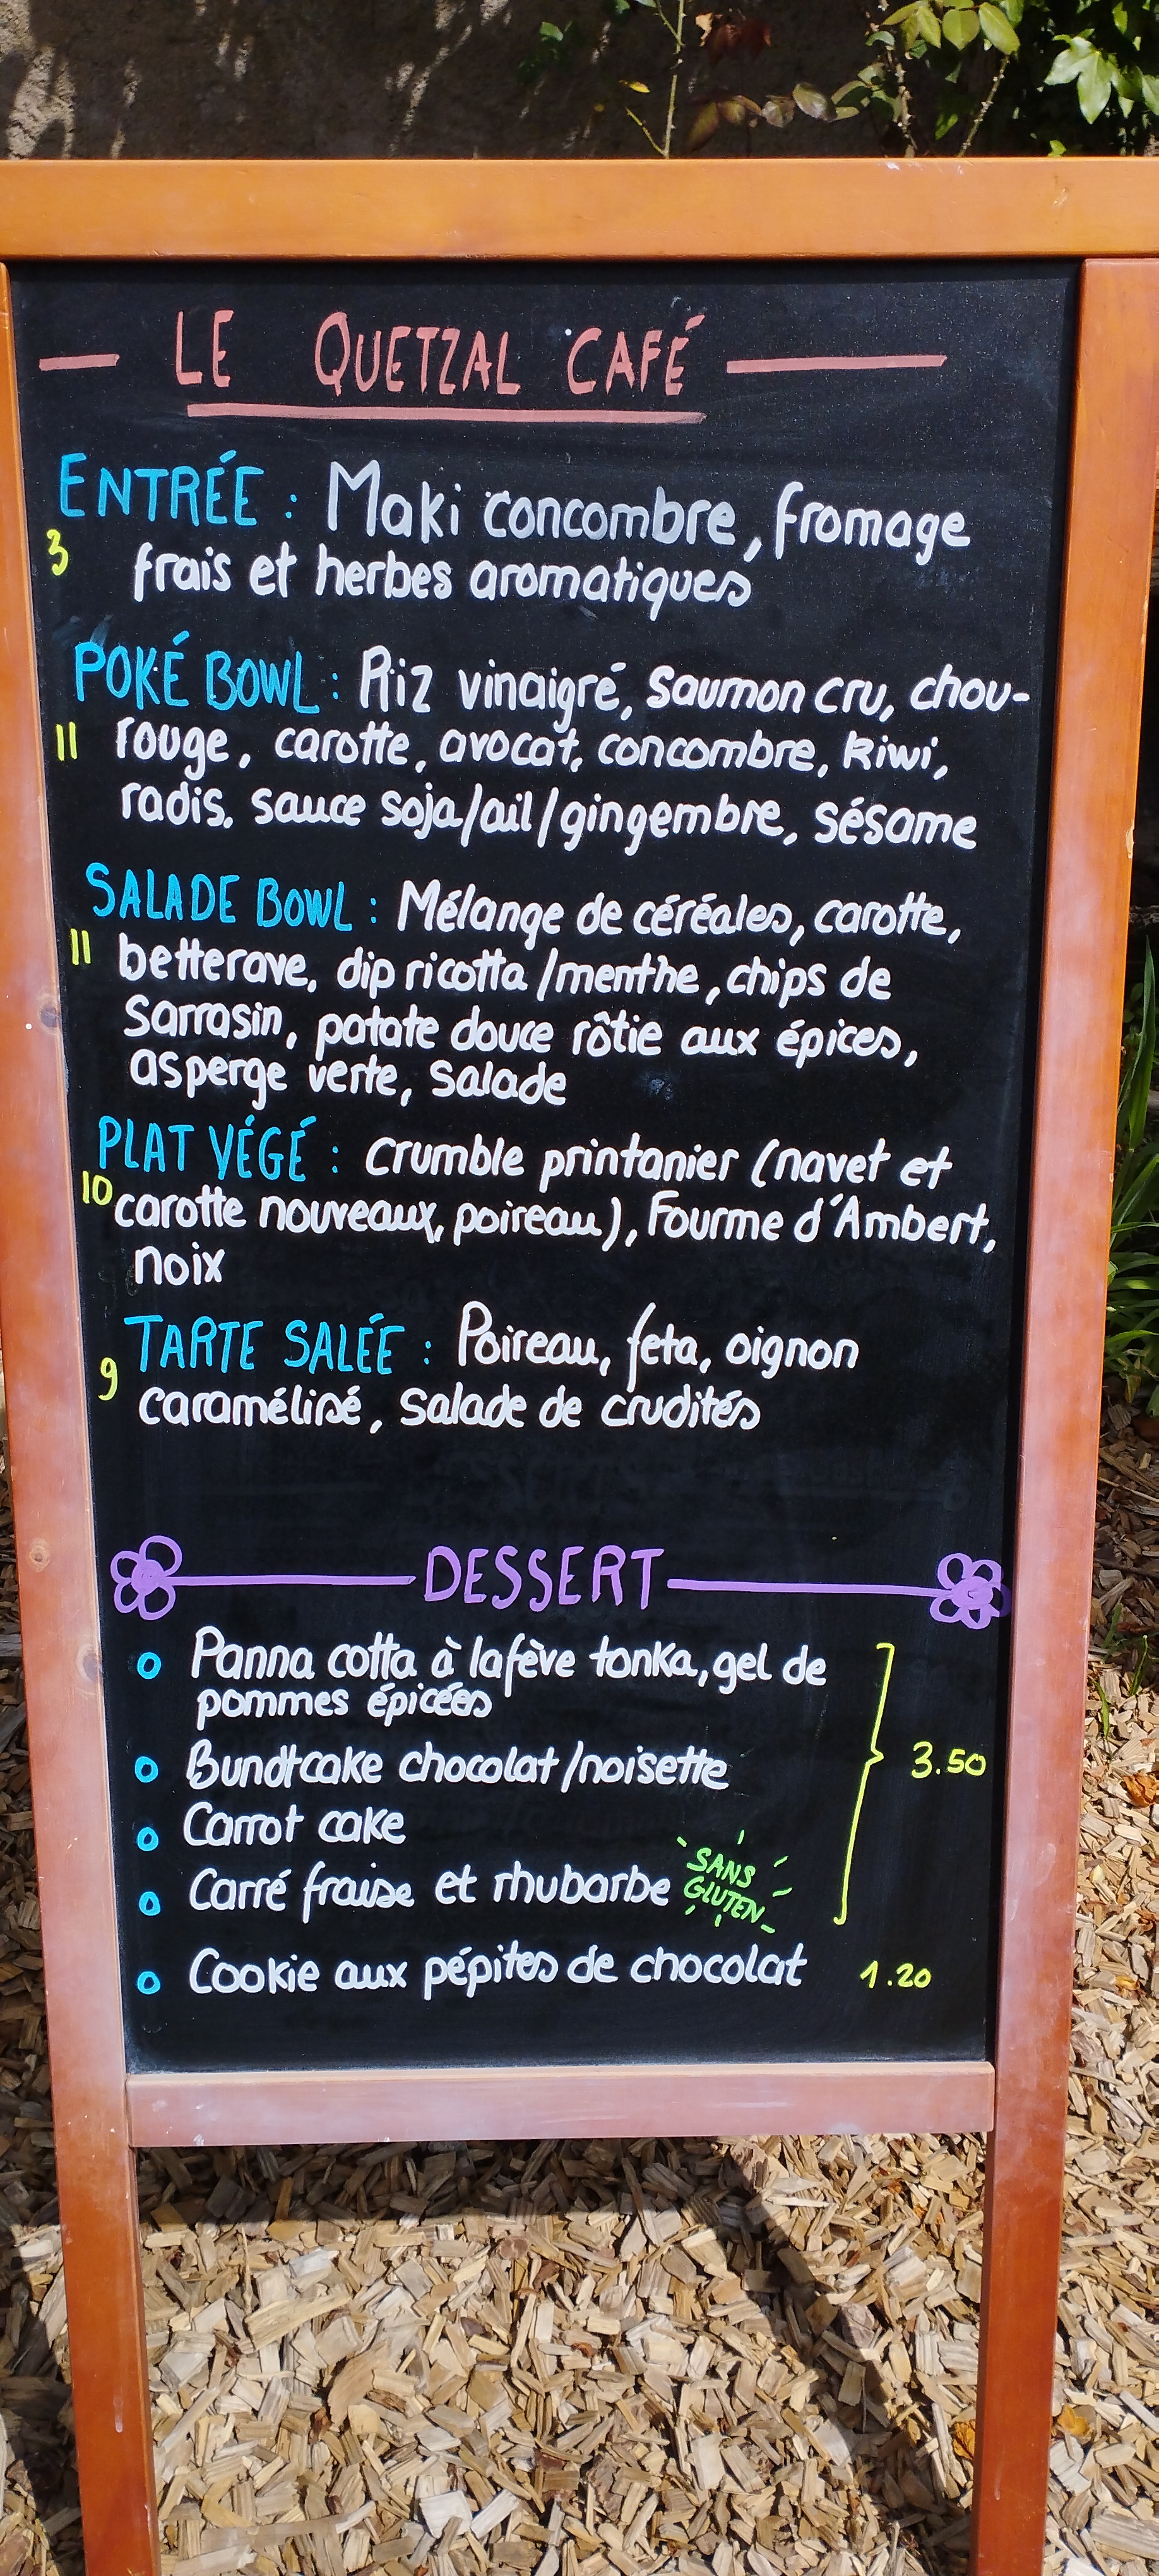 LE QUETZAL CAFÉ
ENTRÉE : Maki concombre, fromage
3 frais et herbes aromatiques
POKÉ BOWL : Riz vinaigré, saumon cru, chou-
11 rouge, carotte, avocat, concombre, kiwi,
radis, sauce soja/ail/gingembre, sésame
SALADE BOWL : Mélange de céréales, carotte,
11 betterave, dip ricotta/menthe, chips de
Sarrasin, patate douce rôtie aux épices,
asperge verte, salade
PLAT VÉGÉ : crumble printanier (navet et
10 carotte nouveaux, poireau), Fourme d'Ambert,
noix
TARTE SALÉE : Poireau, feta, oignon
9 caramélisé, salade de crudités
DESSERT
Panna cotta à la fève tonka, gel de
pommes épicées
Bundtcake chocolat/noisette
3.50
Carrot cake
Carré fraise et rhubarbe SANS
GLUTEN
Cookie aux pépites de chocolat 1.20